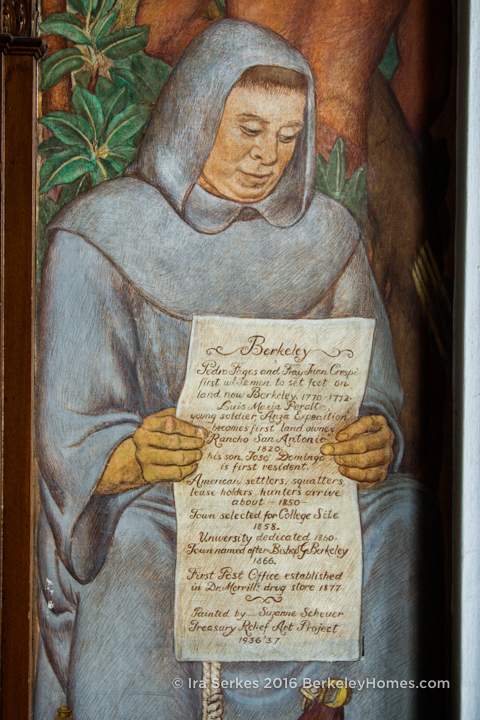 Berkeley
Pedro Fages and Fray Juan Crespi
first w to set foot on
land now Berkeley. 1770-1772-
Luis Maria Peralta,
young soldier Anza Expedition
becomes first land owner
Rancho San Antonio
1820.
his son José Domingo
is first resident.
American settlers, squatters,
lease holders, hunters arrive
about -1850-
Town selected for College Site
1858.
University dedicated 1860.
Town named after Bishop G. Berkeley
1866.
First Post Office established
in Dr. Merrill's drug store 1877
Painted by Suzanne Scheuer
Treasury Relief Art Project
1936'37.
© Ira Serkes 2016 BerkeleyHomes.com